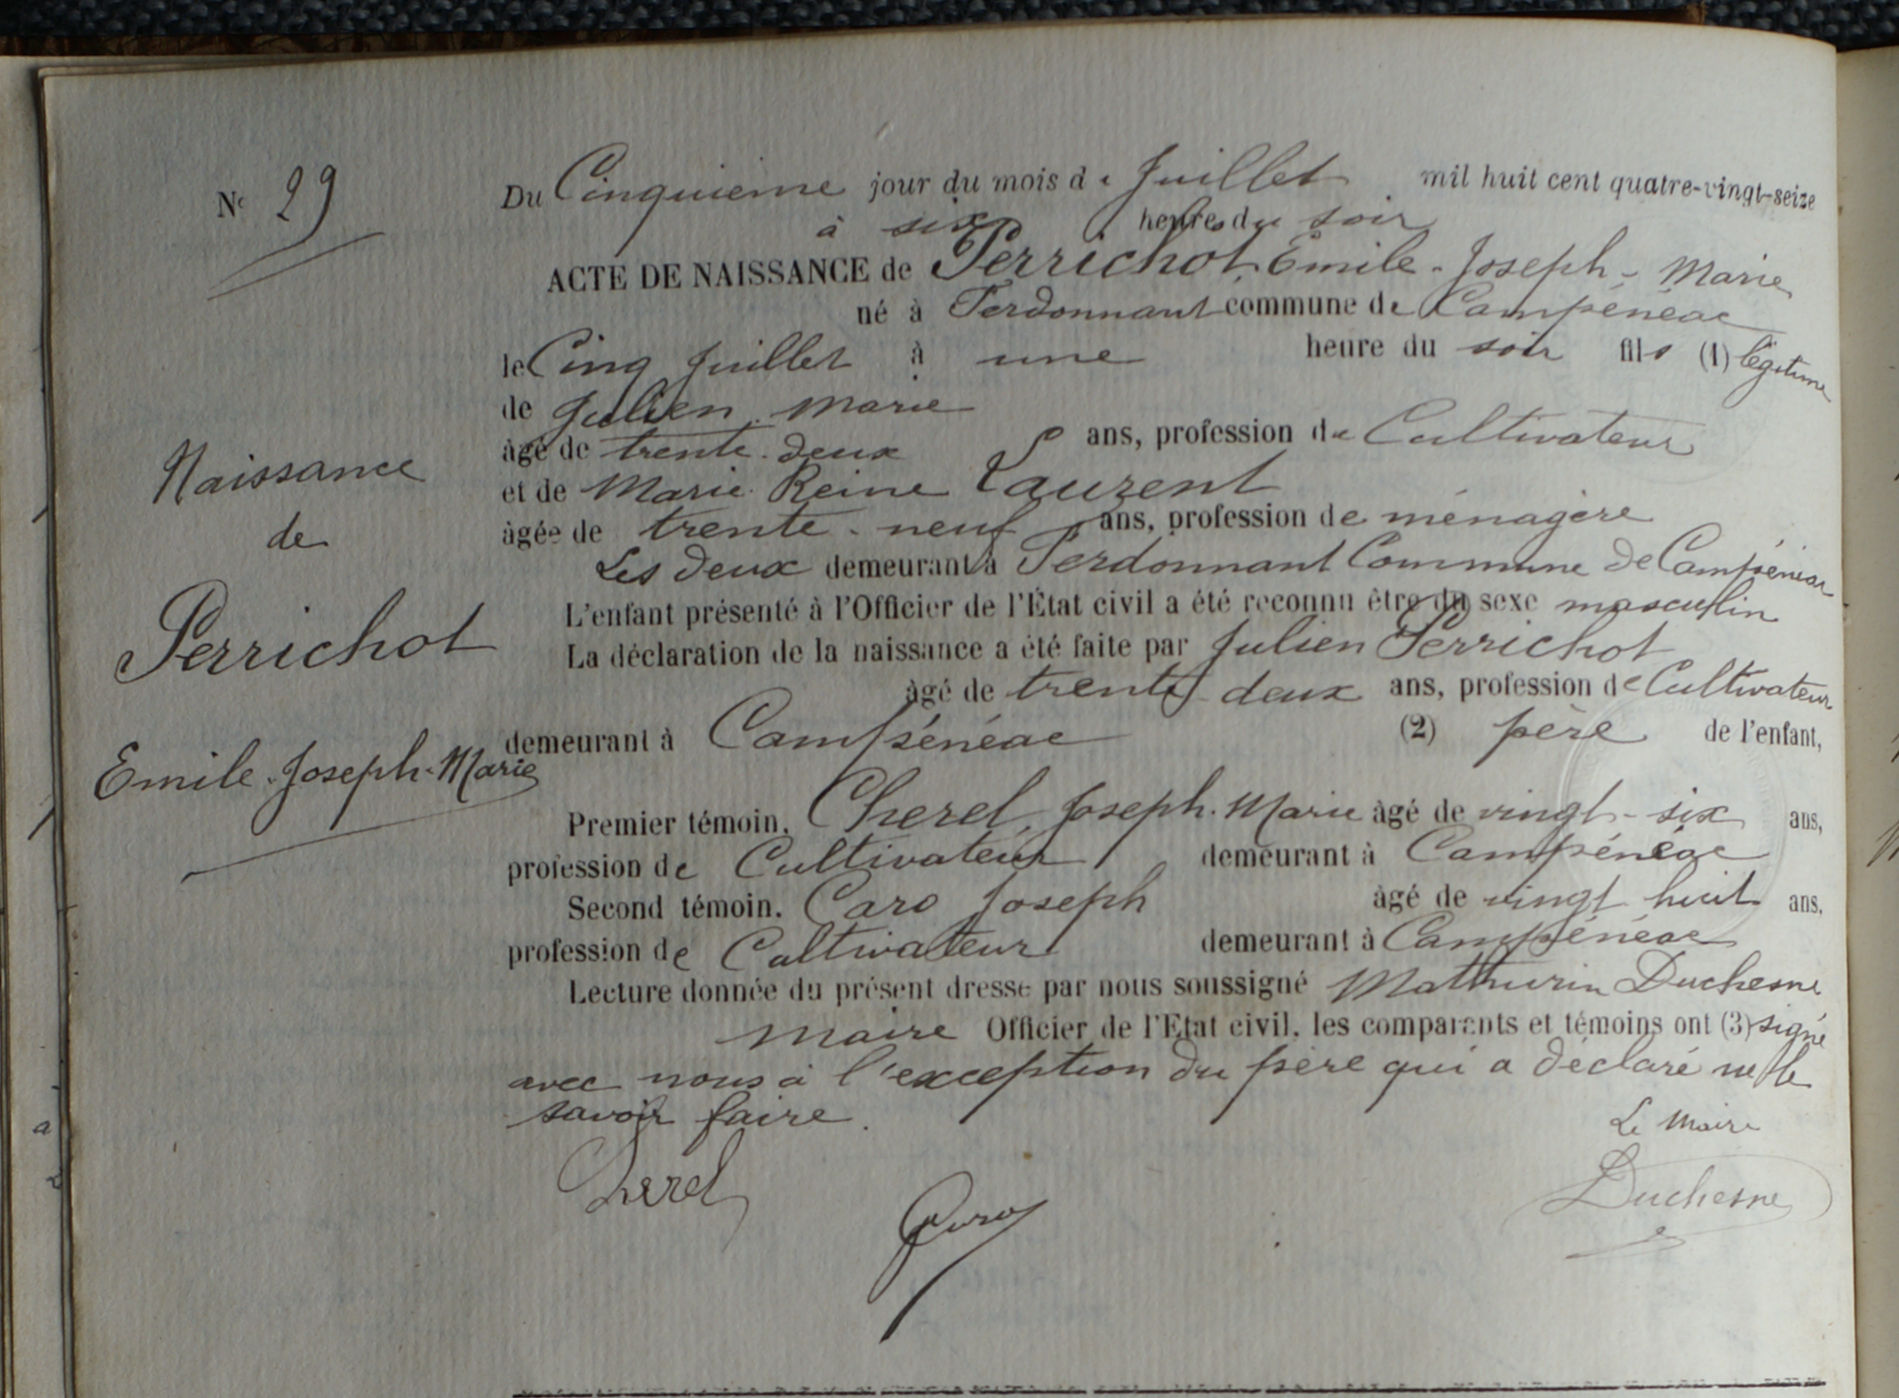 No 29
Du Cinquième jour du mois de Juillet mil huit cent quatre-vingt-seize
à six heures du soir
ACTE DE NAISSANCE de Perrichot Emile-Joseph-Marie
né à Perdonnant commune de Campénéac
le Cinq Juillet à une heure du soir fils (1) légitime
de Julien Marie
âgé de trente-deux ans, profession de Cultivateur
et de Marie Reine Laurent
âgée de trente-neuf ans, profession de ménagère
Les deux demeurant à Perdonnant Commune de Campénéac
L'enfant présenté à l'Officier de l'État civil a été reconnu être du sexe masculin
La déclaration de la naissance a été faite par Julien Perrichot
âgé de trente-deux ans, profession de Cultivateur
demeurant à Campénéac (2) père de l'enfant,
Premier témoin, Cherel, Joseph-Marie âgé de vingt-six ans,
profession de Cultivateur demeurant à Campénéac
Second témoin. Caro Joseph âgé de vingt huit ans,
profession de Cultivateur demeurant à Campénéac
Lecture donnée du présent dressé par nous soussigné Mathurin Duchesne
Maire Officier de l'Etat civil, les comparants et témoins ont (3) signé
avec nous à l'exception du père qui a déclaré ne le
savoir faire.
Le Maire
Cherel Caro Duchesne
Naissance
de
Perrichot
Emile-Joseph-Marie